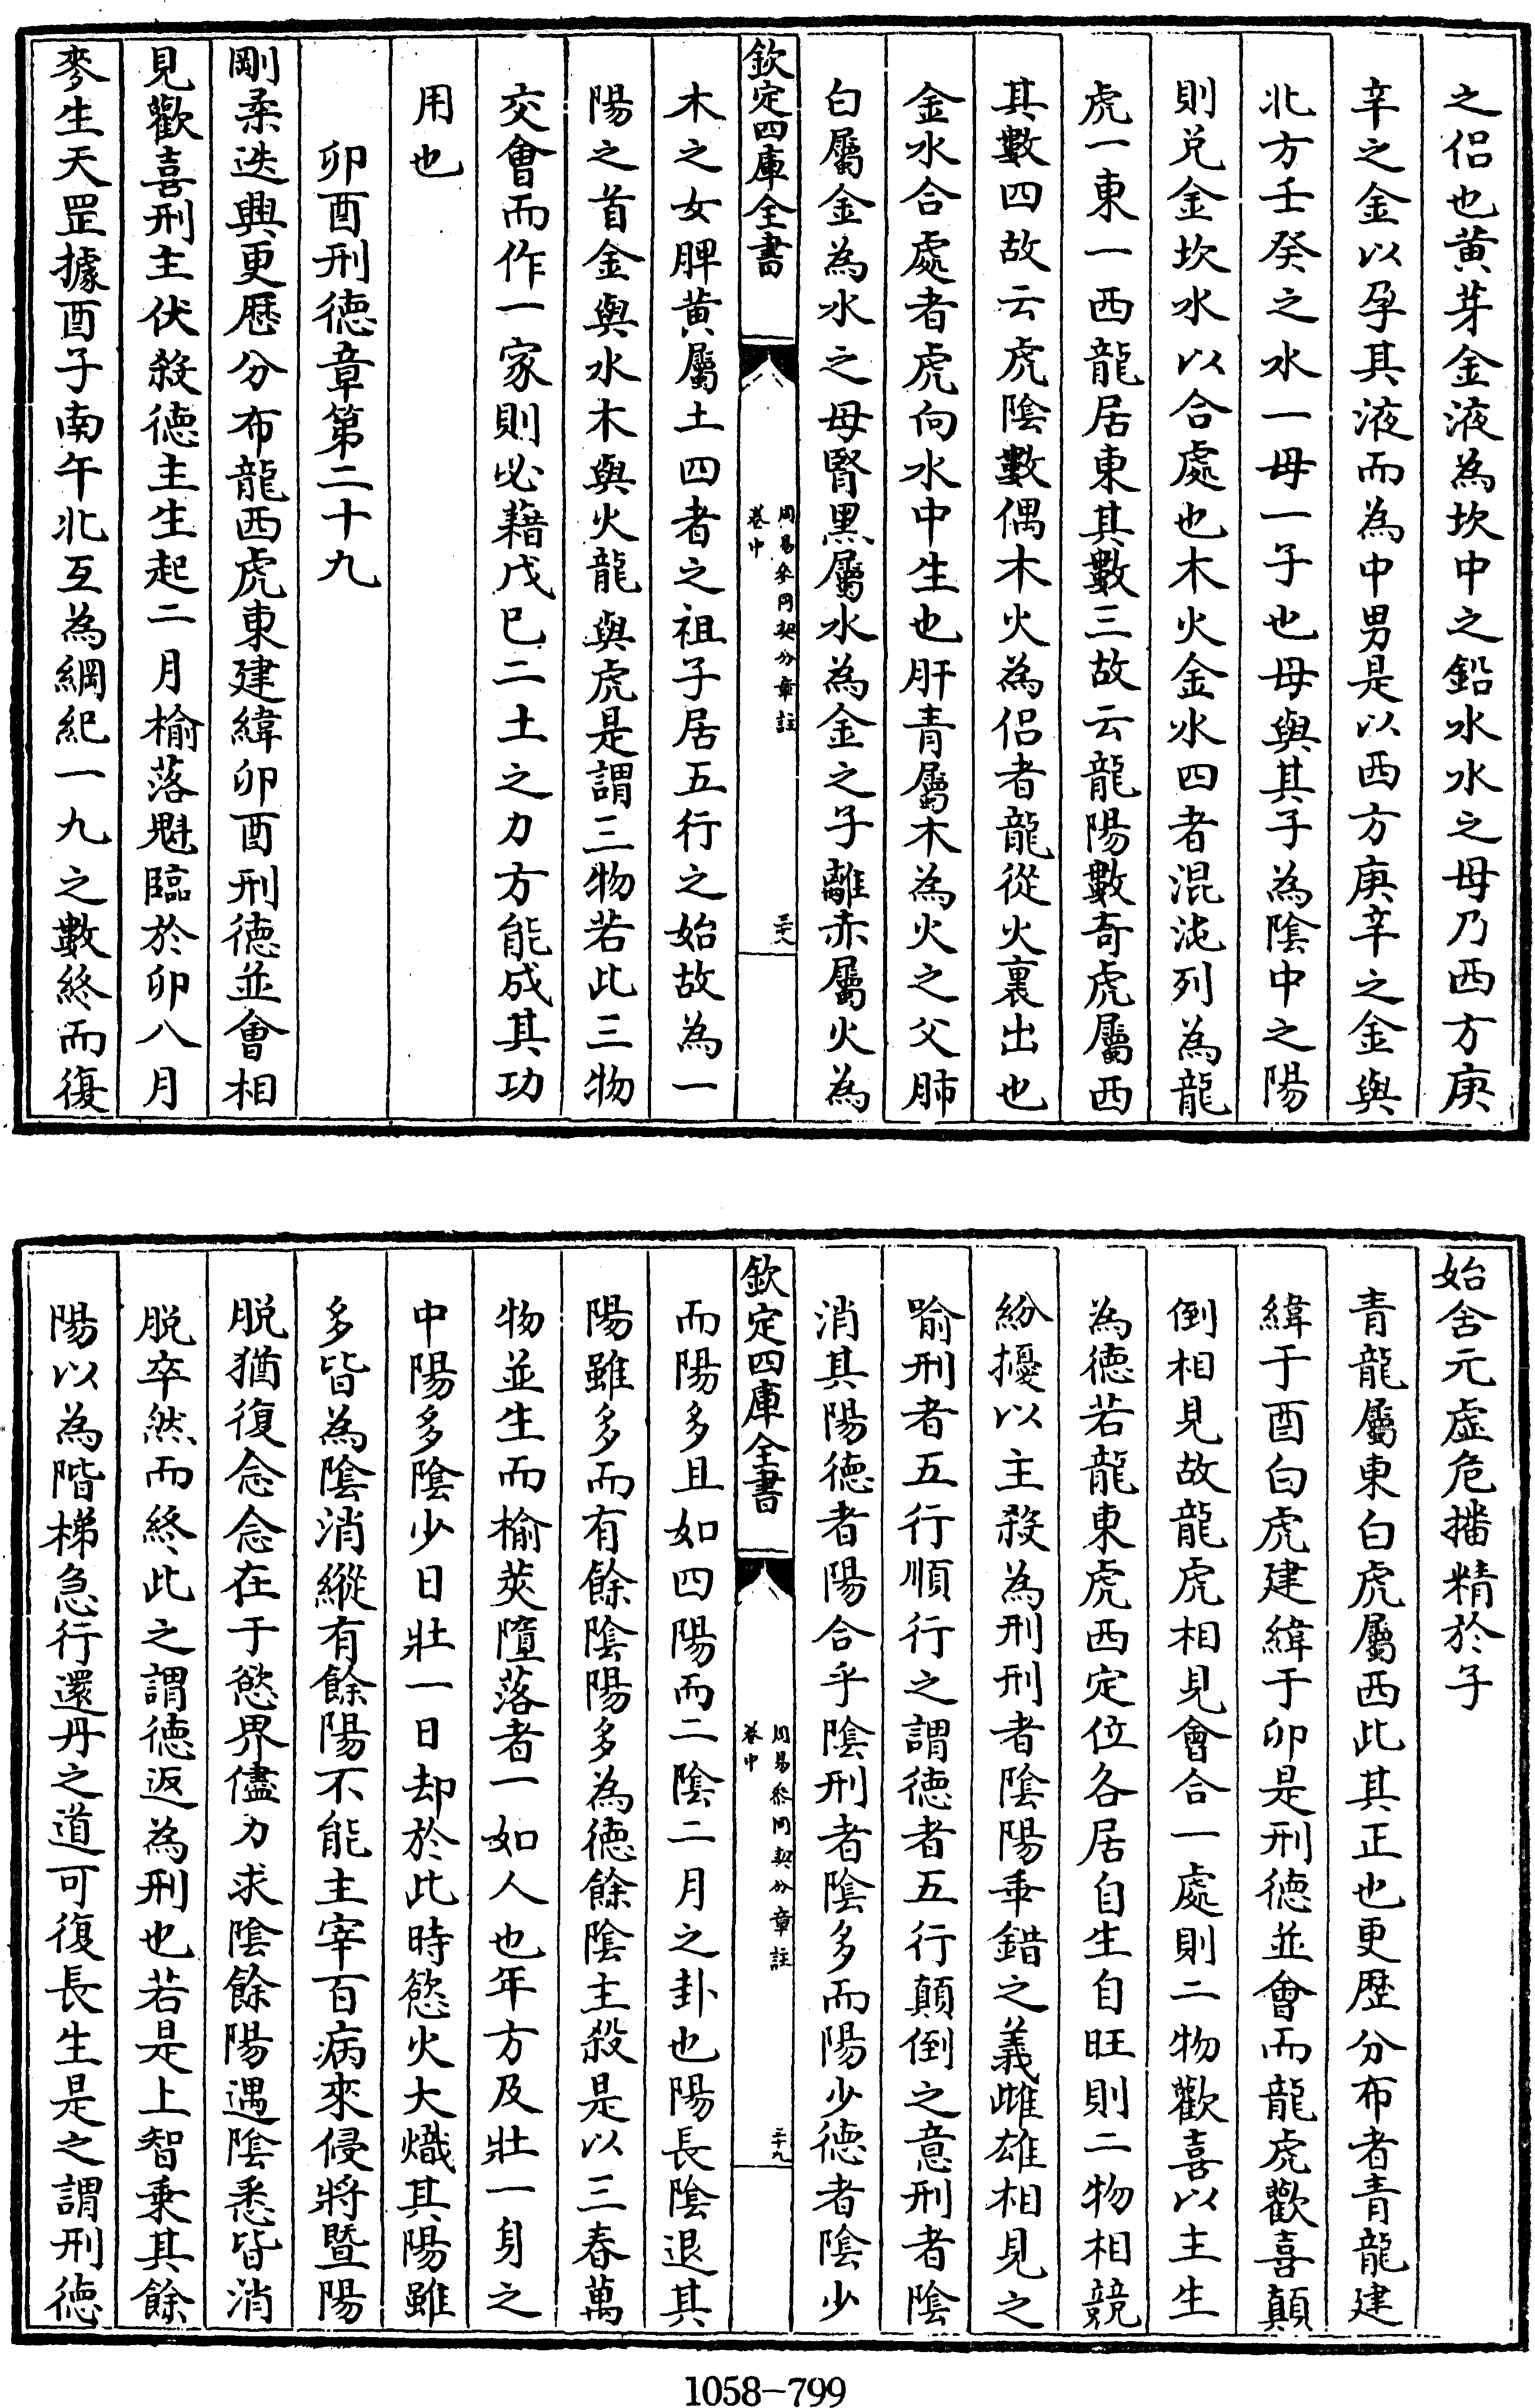 之侣也黄芽金液為坎中之鉛水水之母乃西方庚
辛之金以孕其液而為中男是以西方庚辛之金與
北方壬癸之水一母一子也母與其子為陰中之陽
則兑金坎水以合處也木火金水四者混沌列為龍
虎一東一西龍居東其數三故云龍陽數奇虎屬西
其數四故云虎陰數偶木火為侣者龍從火裏出也
金水合處者虎向水中生也肝青屬木為火之父肺
白屬金為水之母腎黑屬水為金之子離赤屬火為
欽定四庫全書
周易參同契分章註
卷中
三十八
木之女脾黄屬土四者之祖子居五行之始故為一
陽之首金與水木與火龍與虎是謂三物若此三物
交會而作一家則必藉戊巳二土之力方能成其功
用也
卯酉刑德章第二十九
剛柔迭興更歷分布龍西虎東建緯卯酉刑德並會相
見歡喜刑主伏殺德主生起二月榆落魁臨於卯八月
麥生天罡據酉子南午北互為綱紀一九之數終而復
始含元虚危播精於子
青龍屬東白虎屬西此其正也更歴分布者青龍建
緯于酉白虎建緯于卯是刑德並會而龍虎歡喜顛
倒相見故龍虎相見會合一處則二物歡喜以主生
為德若龍東虎西定位各居自生自旺則二物相競
紛擾以主殺為刑刑者陰陽乖錯之義雌雄相見之
喻刑者五行順行之謂德者五行顛倒之意刑者陰
消其陽德者陽合乎陰刑者陰多而陽少德者陰少
欽定四庫全書
周易參同契分章註
卷中
三十九
而陽多且如四陽而二陰二月之卦也陽長陰退其
陽雖多而有餘陰陽多為德餘陰主殺是以三春萬
物並生而榆莢墮落者一如人也年方及壯一身之
中陽多陰少日壯一日却於此時慾火大熾其陽雖
多皆為陰消縱有餘陽不能主宰百病來侵將暨陽
脱猶復念念在于慾界儘力求陰餘陽遇陰悉皆消
脱卒然而終此之謂德返為刑也若是上智乗其餘
陽以為階梯急行還丹之道可復長生是之謂刑德
1058-799